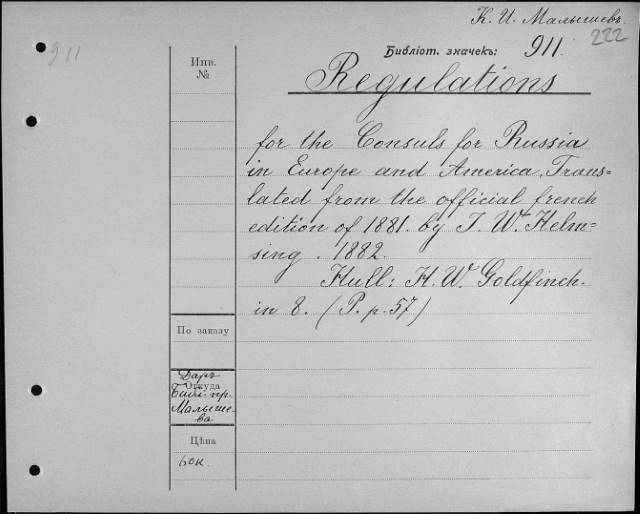 К. И. Малышевъ.
222
911
Библіот. значекъ: 911.
Инв.
№
Regulations
for the Consuls for Russia
in Europe and America. Trans=
lated from the official french
edition of 1881. by T. W. Helm=
sing. 1882.
Hull: H. W. Goldfinch.
in 8. (P. p. 57)
По заказу
Даръ
Откуда
Библ. пр.
Малыше-
ва
Цѣна
60к.